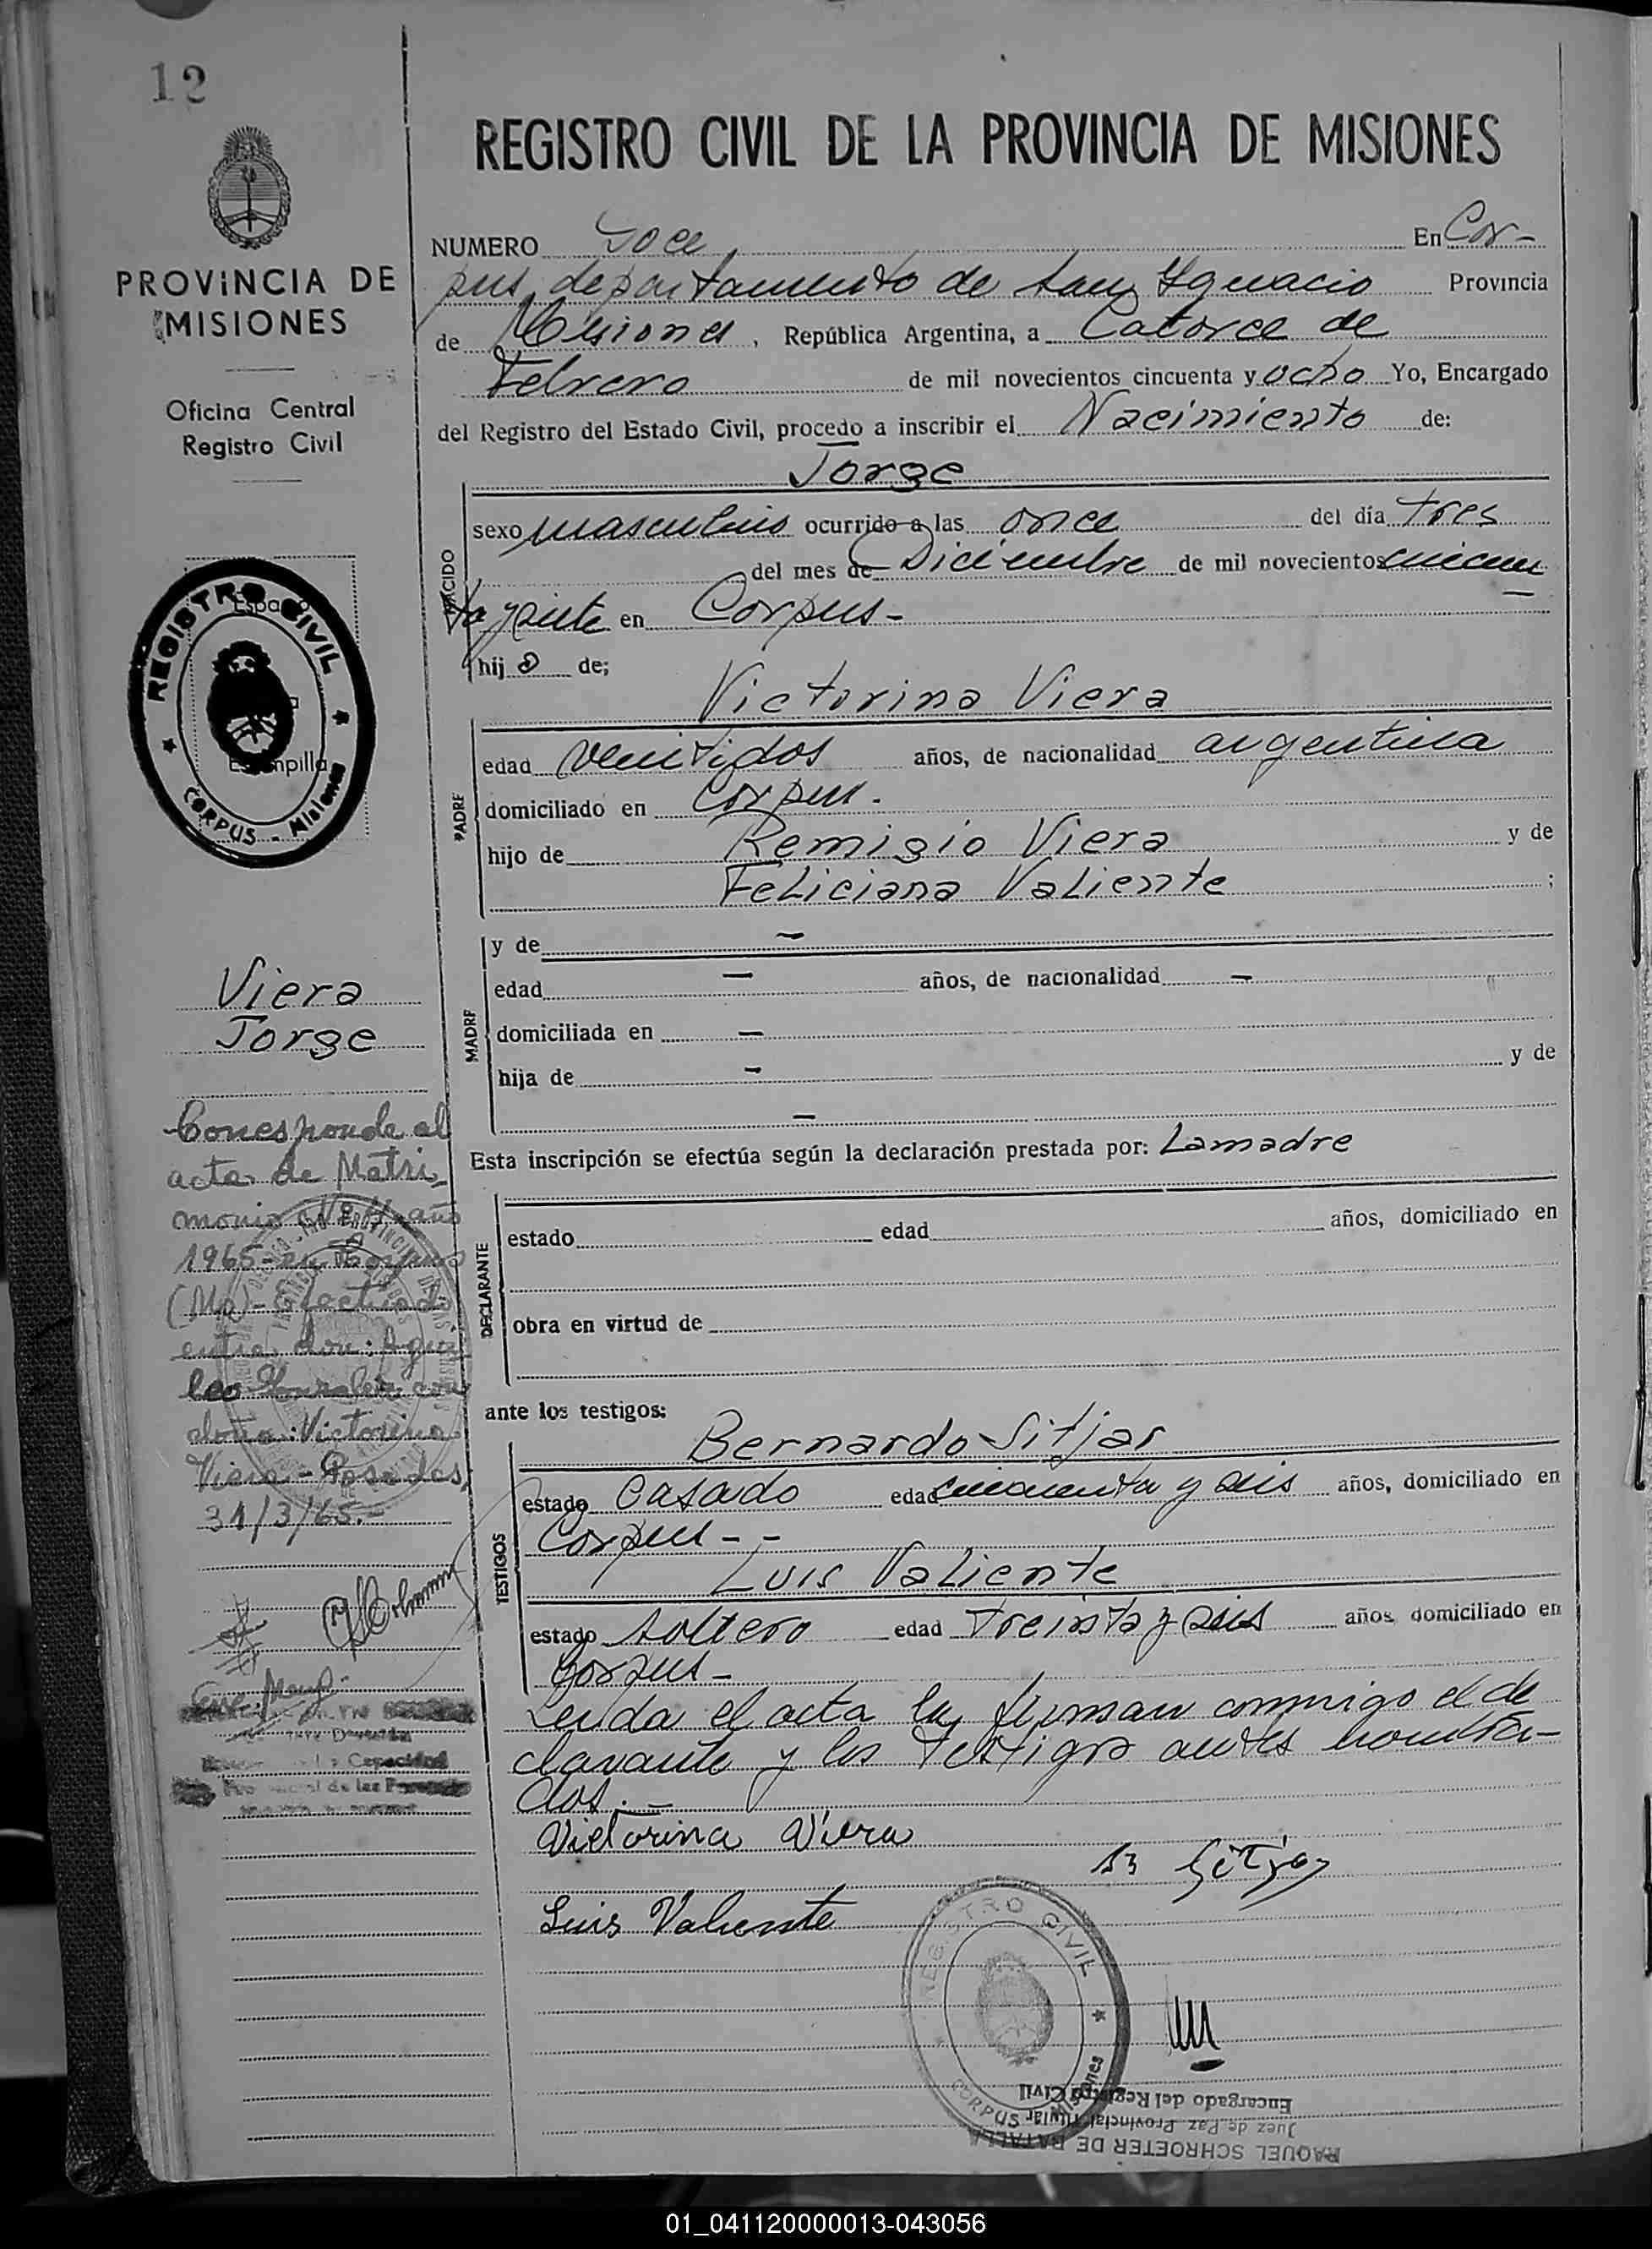 12
REGISTRO CIVIL DE LA PROVINCIA DE MISIONES
PROVINCIA DE
MISIONES
Oficina Central
Registro Civil
NUMERO Doce En Cor-
pus, departamento de San Ygnacio Provincia
de Misiones, República Argentina, a Catorce de
Febrero de mil novecientos cincuenta y ocho Yo, Encargado
del Registro del Estado Civil, procedo a inscribir el Nacimiento de:
Jorge
NACIDO
sexo masculino ocurrido a las once del día tres
del mes de Diciembre de mil novecientos cincuen
ta y siete en Corpus-
hijo de;
Victorina Viera
PADRE
edad veintidos años, de nacionalidad argentina
domiciliado en Corpus.
hijo de Remigio Viera y de
Feliciana Valiente ;
MADRE
y de -
edad - años, de nacionalidad -
domiciliada en -
hija de - y de
-
Esta inscripción se efectúa según la declaración prestada por: La madre
DECLARANTE
estado edad años, domiciliado en
obra en virtud de
ante los testigos:
TESTIGOS
Bernardo Sitjar
estado Casado edad cincuenta y seis años, domiciliado en
Corpus--
Luis Valiente
estado soltero edad treinta y seis años, domiciliado en
Corpus-
Leida el acta la firman conmigo el de
clarante y los testigos antes nombra-
dos.-
Victorina Viera
B Sitjar
Luis Valiente
REGISTRO CIVIL
CORPUS Misiones
RAQUEL SCHROETER DE BATALLA
Juez de Paz Provincial Titular
Encargado del Registro Civil
REGISTRO CIVIL
CORPUS - Misiones
Espa
Estampilla
Viera
Jorge
Corresponde al
acta de Matri-
monio Nº año
1965- en Corpus
(Ms)- Efectuado
entre don:
Gonzalez con
doña: Victorina
Viera - Posadas,
31/3/65.-
Capacidad
de las
01_041120000013-043056